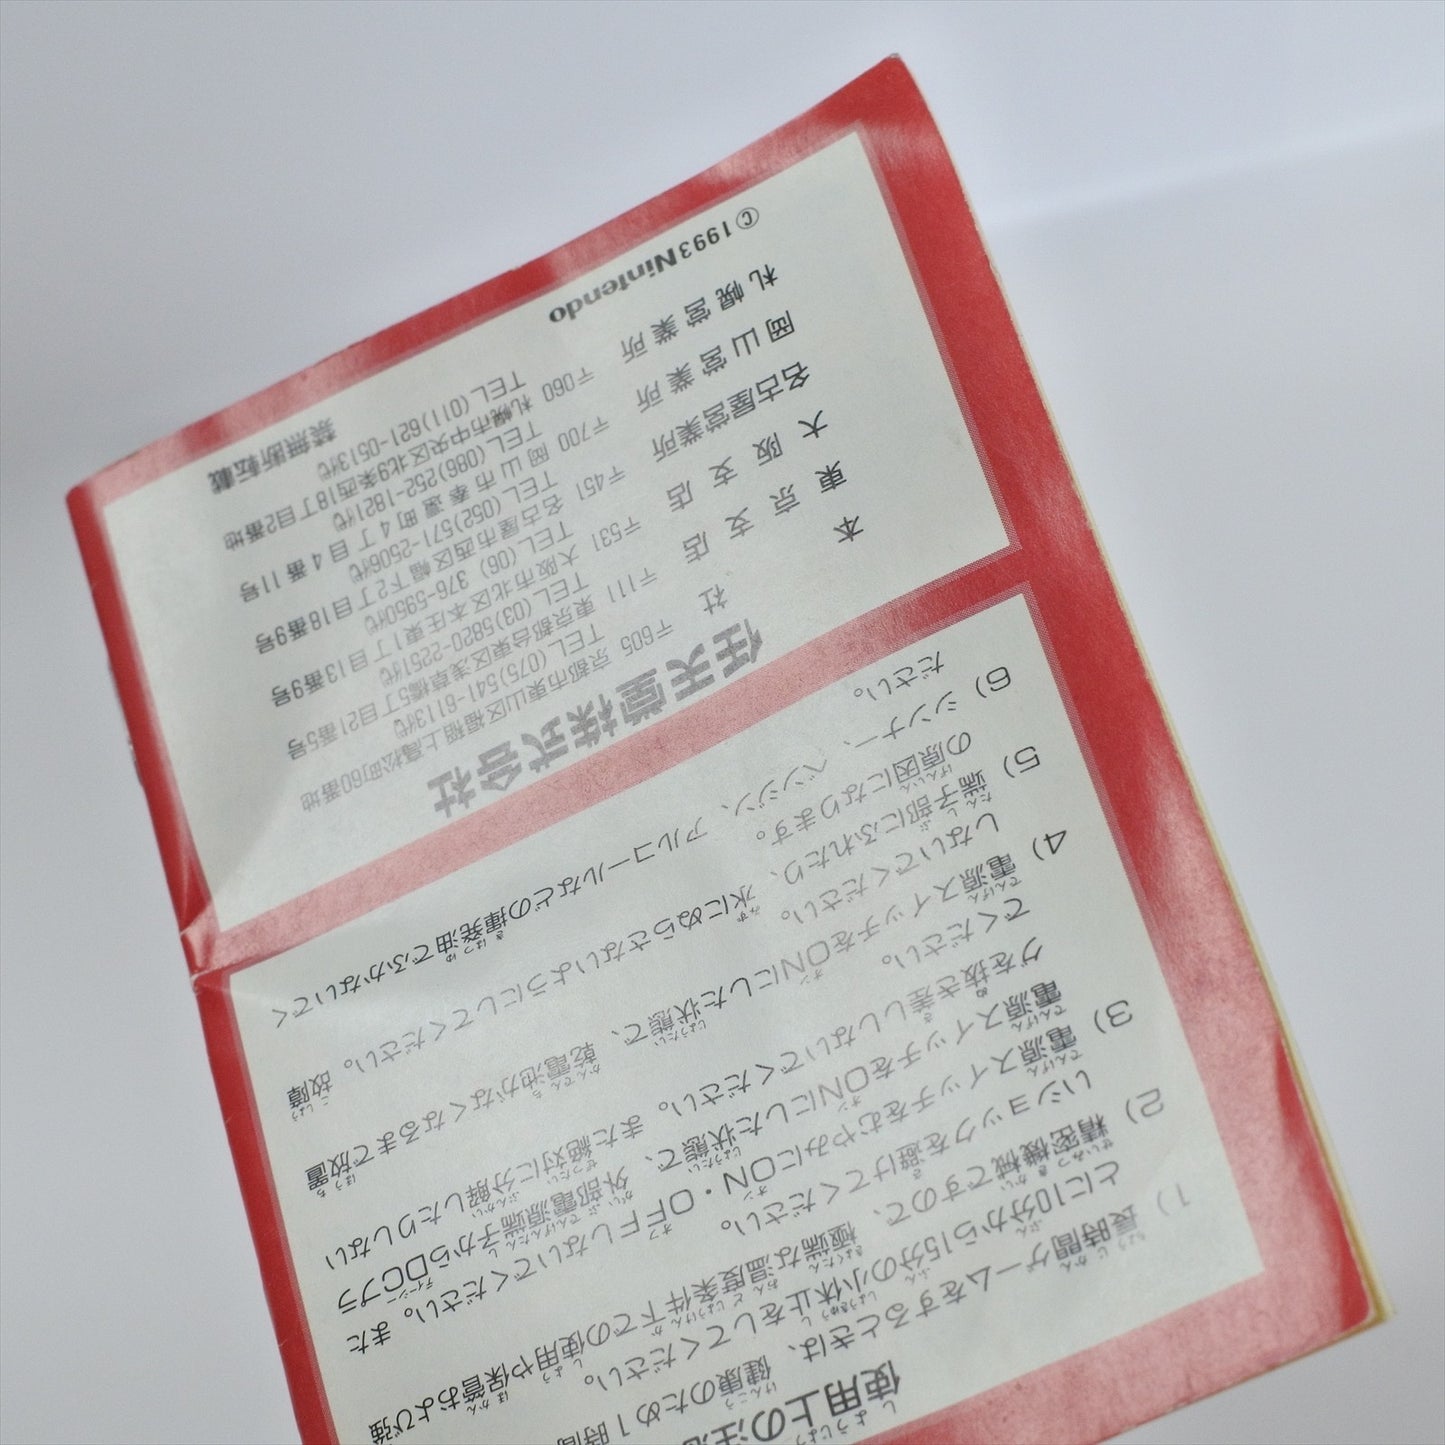 使用上の注
1) 長時間ゲームをするときは、健康のため1時間
とに10分から15分の小休止をしてください。
2) 精密機械ですので、極端な温度条件下での使用や保管および強
いショックを避けてください。
3) 電源スイッチをむやみにON・OFFしないでください。また
電源スイッチをONにした状態で、外部電源端子からDCプラ
グを抜き差ししないでください。また絶対に分解したりしない
でください。
4) 電源スイッチをONにした状態で、乾電池がなくなるまで放置
しないでください。
5) 端子部にふれたり、水にぬらさないようにしてください。故障
の原因になります。
6) シンナー、ベンジン、アルコールなどの揮発油でふかないでく
ださい。
任天堂株式会社
本社 〒605 京都市東山区福稲上高松町60番地
TEL (075)541-6113代
東京支店 〒111 東京都台東区浅草橋5丁目21番5号
TEL (03)5820-2251代
大阪支店 〒531 大阪市北区本庄東1丁目13番9号
TEL (06) 376-5950代
名古屋営業所 〒451 名古屋市西区幅下2丁目18番9号
TEL (052)571-2506代
岡山営業所 〒700 岡山市奉還町4丁目4番11号
TEL (086)252-1821代
札幌営業所 〒060 札幌市中央区北9条西18丁目2番地
TEL (011)621-0513代
©1993 Nintendo 禁無断転載